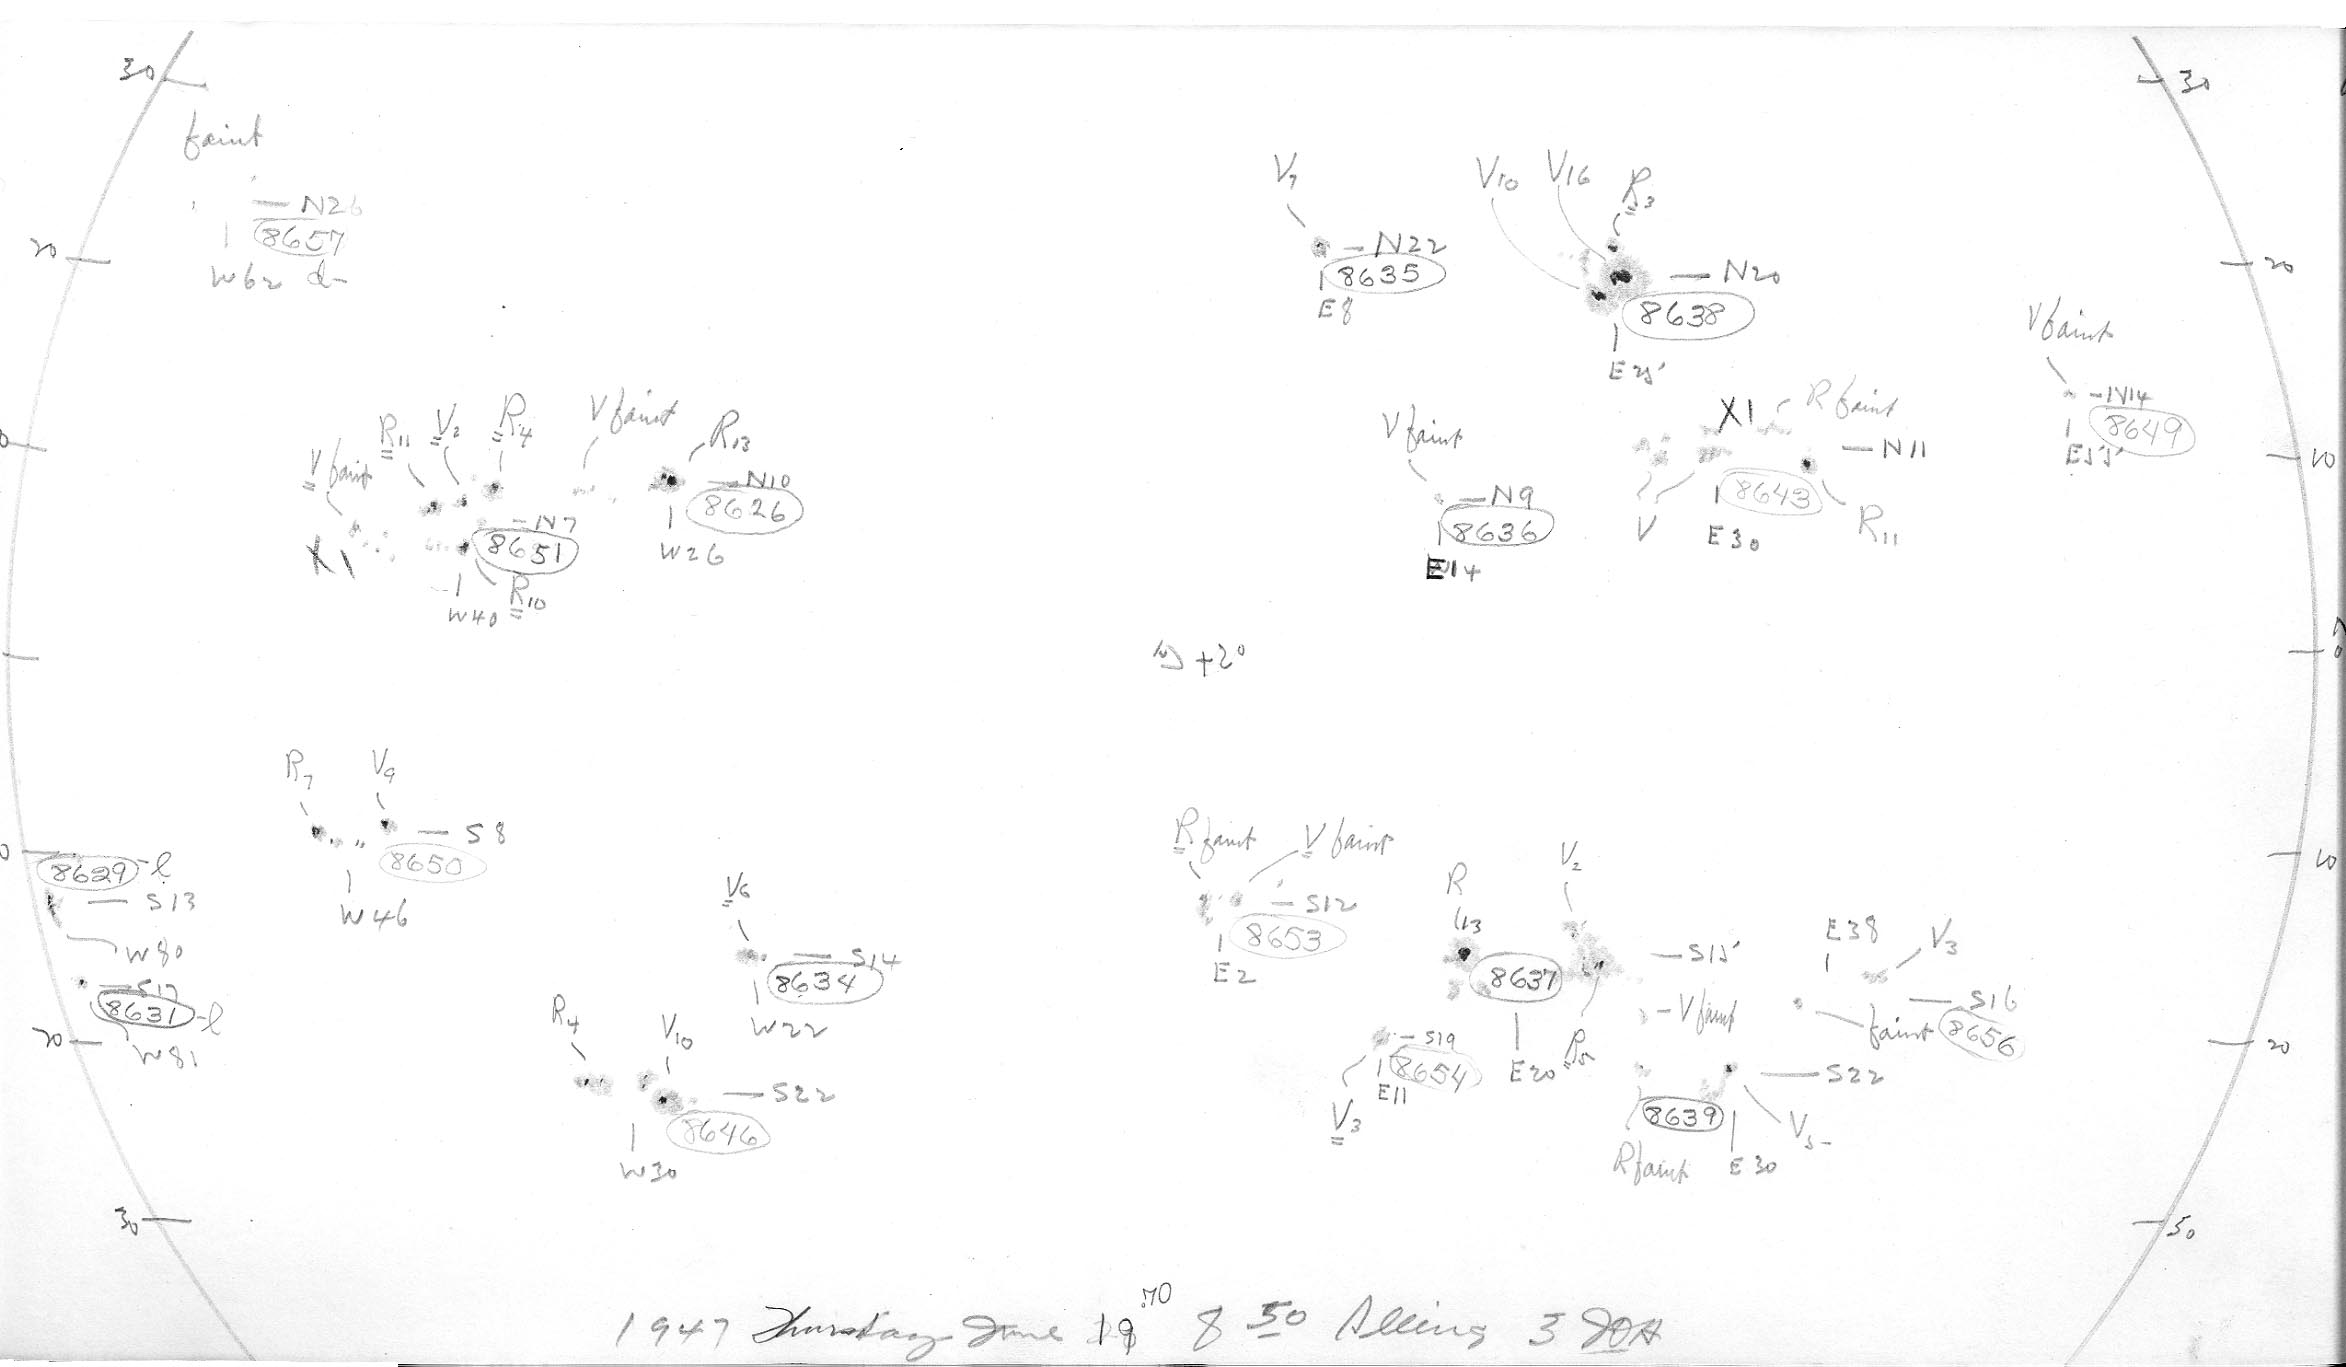 30
30
faint
N26
8657
W62 d-
20
V7
N22
8635
E8
V10
V16
R3
N20
8638
E25
20
V faint
N14
8649
E55
R11
V2
R4
V faint
R13
V faint
N10
8626
W26
N7
8651
X1
W40
R10
V faint
N9
8636
E14
X1
R faint
N11
8643
V
E30
R11
10
+2°
0
R7
V9
S8
8650
W46
0
8629-l
S13
W80
S17
8631-l
W81
20
V6
S14
8634
W22
R4
V10
S22
8646
W30
R faint
V faint
S12
8653
E2
R
13
8637
V2
S15
E20
R5
V faint
S19
8654
E11
V3
E38
V3
S16
faint
8656
10
20
S22
8639
V5-
R faint
E30
30
30
1947 Thursday June 19 .70 8 50 Seeing 3